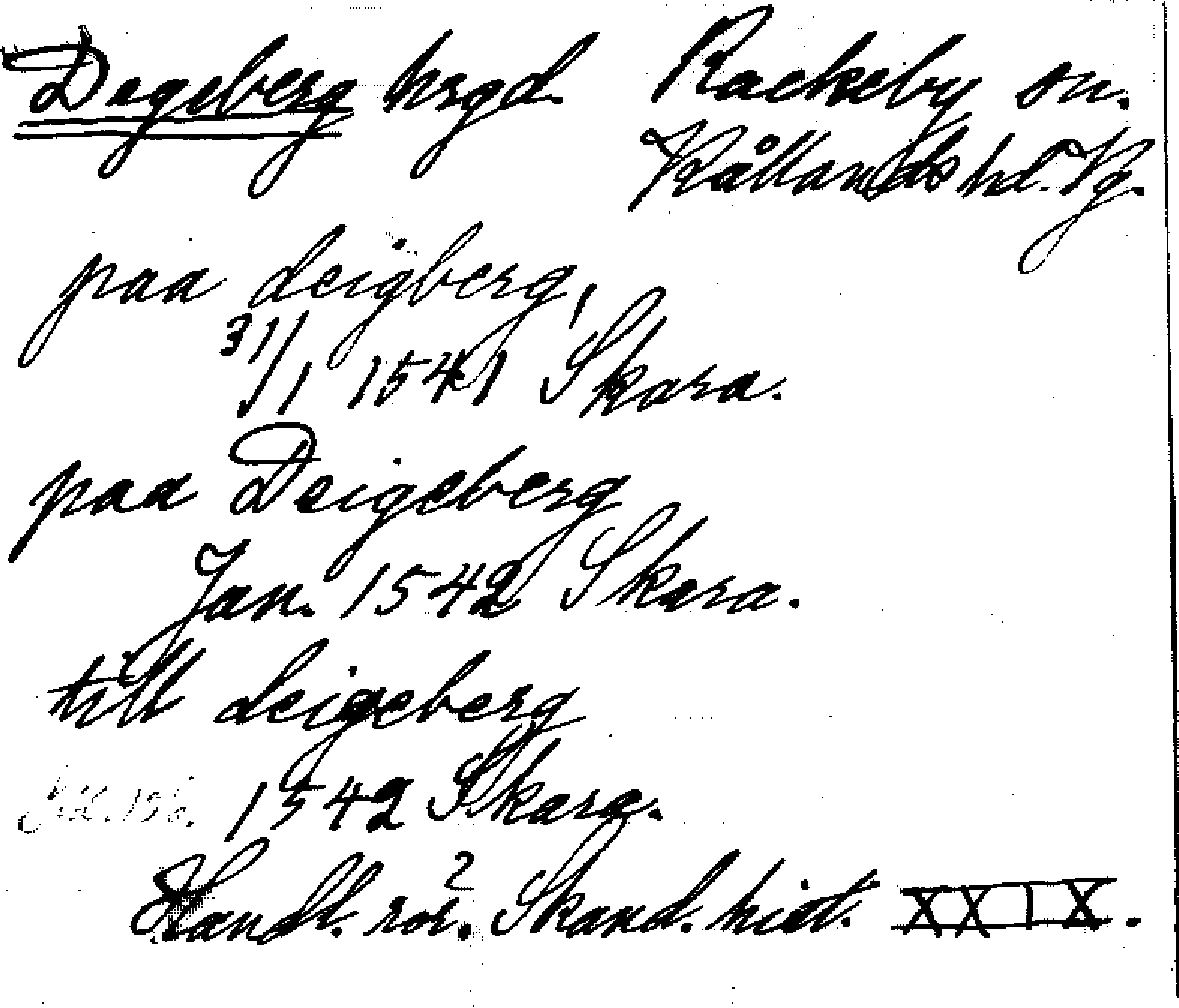 Degeberg hrgd. Rackeby sn.
Kållands hd. Vg.
paa deigberg,
31/1 1541 Skara.
paa Deigeberg
Jan. 1542 Skara.
till deigeberg
1542 Skara.
Handl. rör. Skand. hist. XXIX.